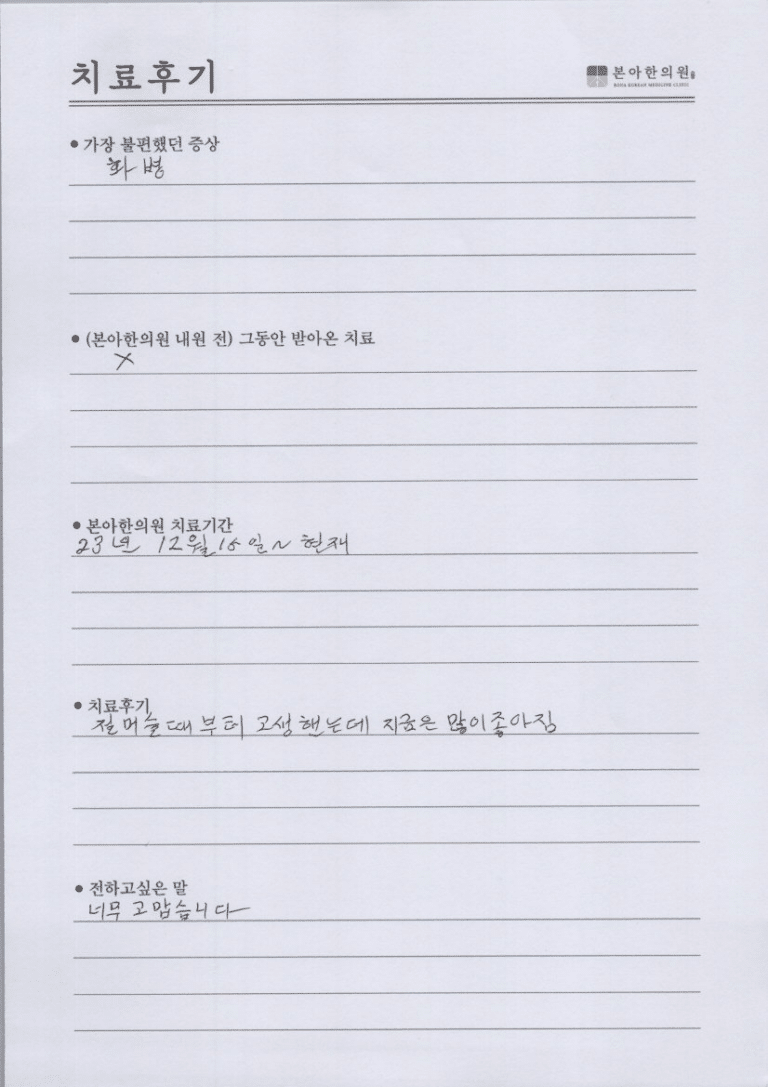 치료후기
본아한의원
BONA KOREAN MEDICINE CLINIC
● 가장 불편했던 증상
화병
● (본아한의원 내원 전) 그동안 받아온 치료
X
● 본아한의원 치료기간
23년 12월 18일 ~ 현재
● 치료후기
절머슬때부터 고생핸는데 지금은 많이좋아짐
● 전하고싶은 말
너무 고맙습니다